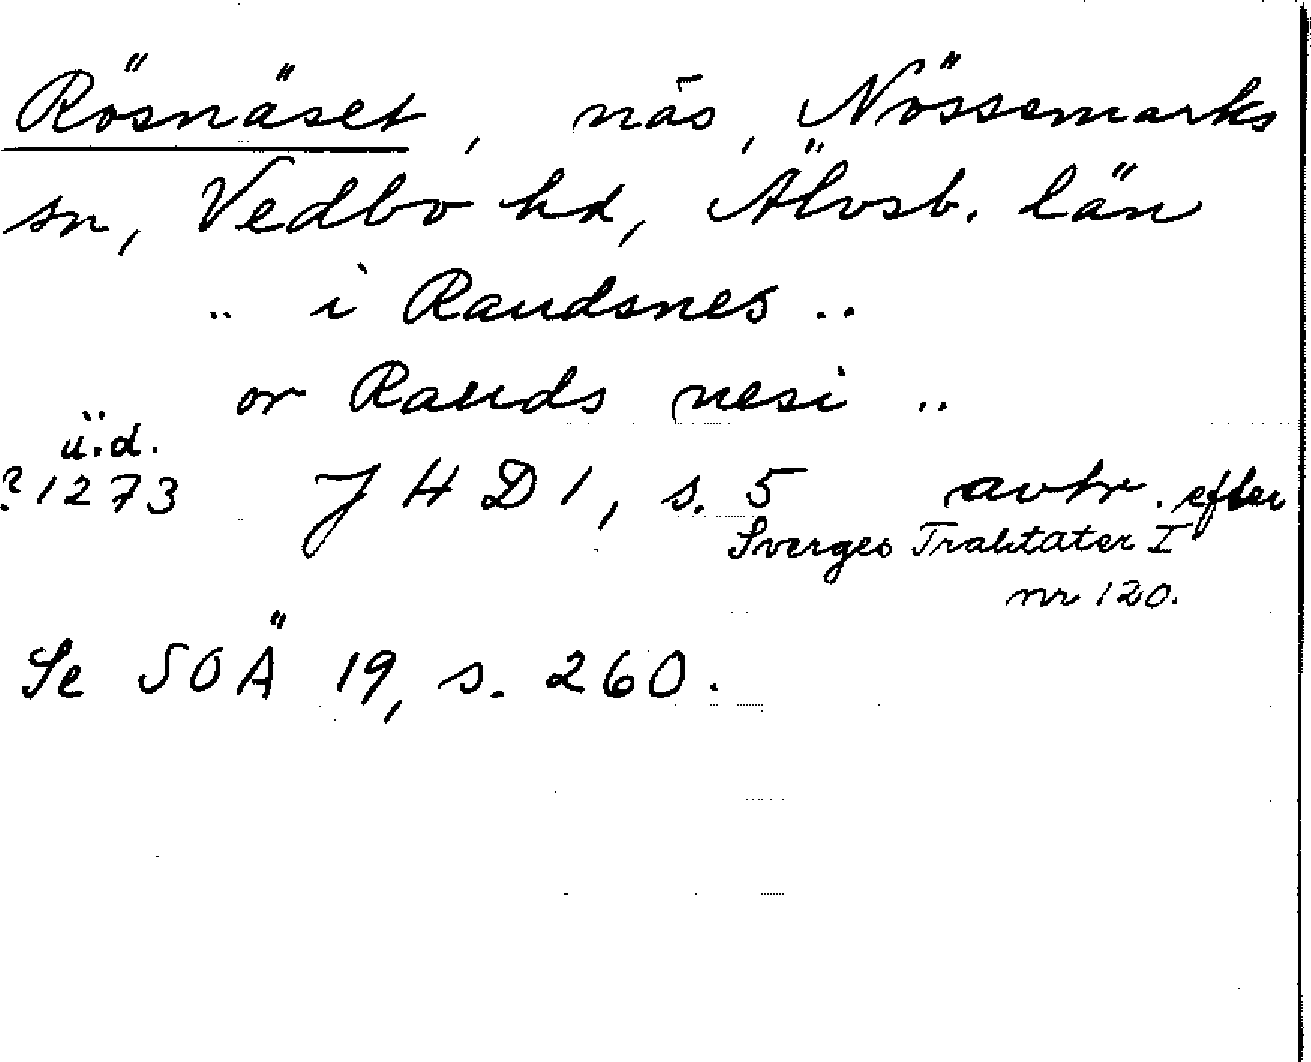 Rösnäset, näs, Nössemarks
sn, Vedbo hd, Älvsb. län
.. i Raudsnes ..
or Rauds nesi ..
u.d.
? 1273 J H D 1, s. 5 avtr. efter
Sverges Traktater I
nr 120.
Se SOÄ 19, s. 260.